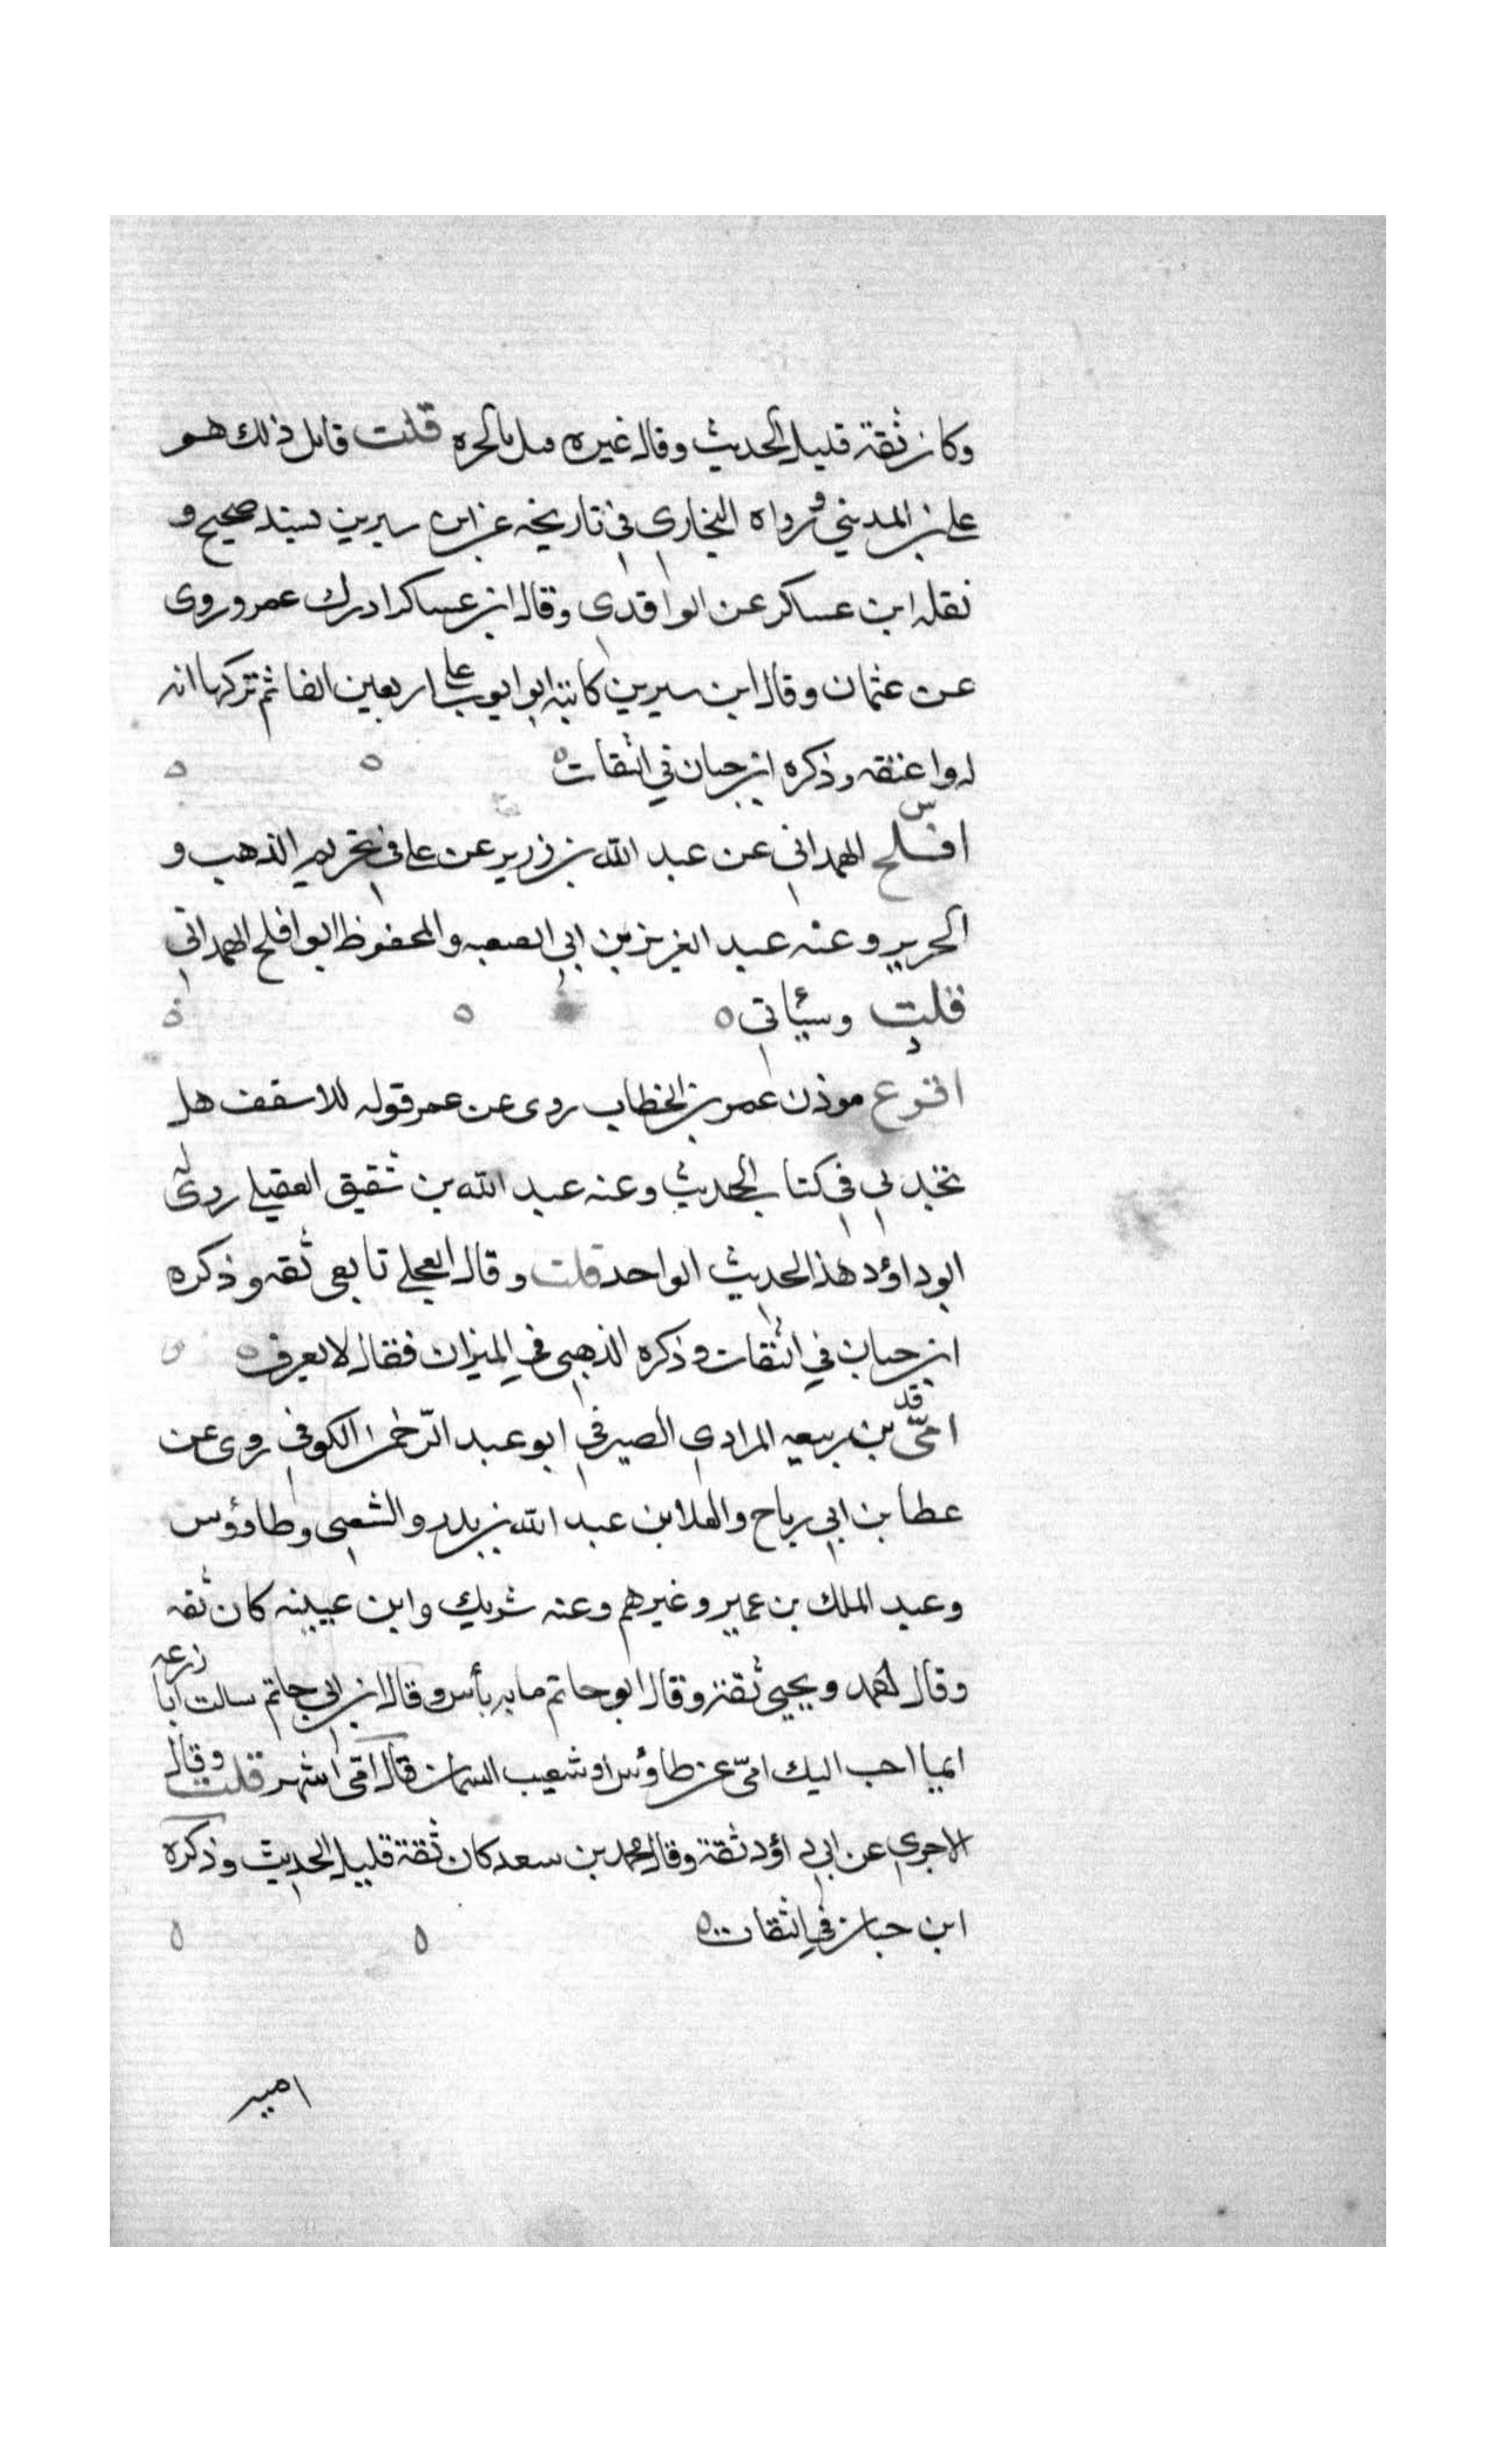 وكان ثقة قليل الحديث وقال غيره قتل بالحره قلت قايل ذلك هو
علي بن المديني ورواه البخاري في تاريخه عن ابن سيرين بسند صحيح و
نقله ابن عساكر عن الواقدي وقال ابن عساكر ادرك عمر وروى
عن عثمان وقال ابن سيرين كاتبه ابو ايوب على اربعين الفا ثم تركها انه
له واعتقه وذكره ابن حبان في الثقات ه ه ه
س
افلح الهمداني عن عبد الله بن زرير عن علي في تحريم الذهب و
الحرير وعنه عبد العزيز بن ابي الصعبه والمحفوظ ابو افلح الهمداني
قلت وسيأتي ه ه ه
د
اقرع موذن عمر بن الخطاب روى عن عمر قوله للاسقف هل
تجدني في كتاب الحديث وعنه عبد الله بن شقيق العقيلي روى له
ابو داؤد هذا الحديث الواحد قلت وقال العجلي تابعي ثقه وذكره
ابن حبان في الثقات وذكره الذهبي في الميزان فقال لا يعرف ه ه
قد
امّي بن ربيعه المرادي الصيرفي ابو عبد الرّحمن الكوفي روى عن
عطا بن ابي رباح والعلا بن عبد الله بن بدر والشعبي وطاؤس
وعبد الملك بن عمير وغيرهم وعنه شريك وابن عيينه كان ثقه
وقال احمد ويحيى ثقة وقال ابو حاتم ما به بأس وقال ابن ابي حاتم سالت ابا زرعه
ايما احب اليك امّي عن طاؤس او شعيب السمان قال امّي اشهر قلت وقال
الاجري عن ابي داؤد ثقة وقال محمد بن سعد كان ثقة قليل الحديث وذكره
ابن حبان في الثقات ه ه ه
اميه